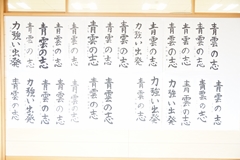 青雲の志
力強い出発
青雲の志
青雲の志
青雲の志
力強い出発
青雲の志
青雲の志
青雲の志
青雲の志
青雲の志
力強い出発
青雲の志
力強い出発
青雲の志
青雲の志
青雲の志
力強い出発
青雲の志
青雲の志
力強い出発
青雲の志
青雲の志
青雲の志
青雲の志
青雲の志
力強い出発
青雲の志